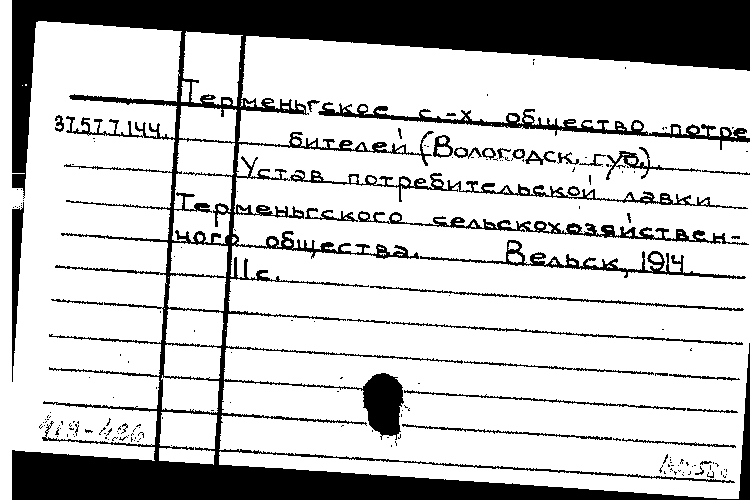 Терменьгское с.-х. общество потре
37.57.7.144.
бителей (Вологодск. губ.).
Устав потребительской лавки
Терменьгского сельскохозяйствен-
ного общества. Вельск, 1914.
11 с.
419-426